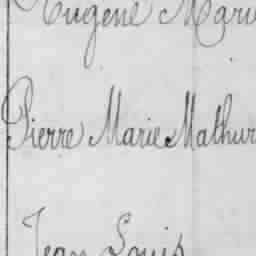 Eugène Marie
Pierre Marie Mathur
Jean Louis